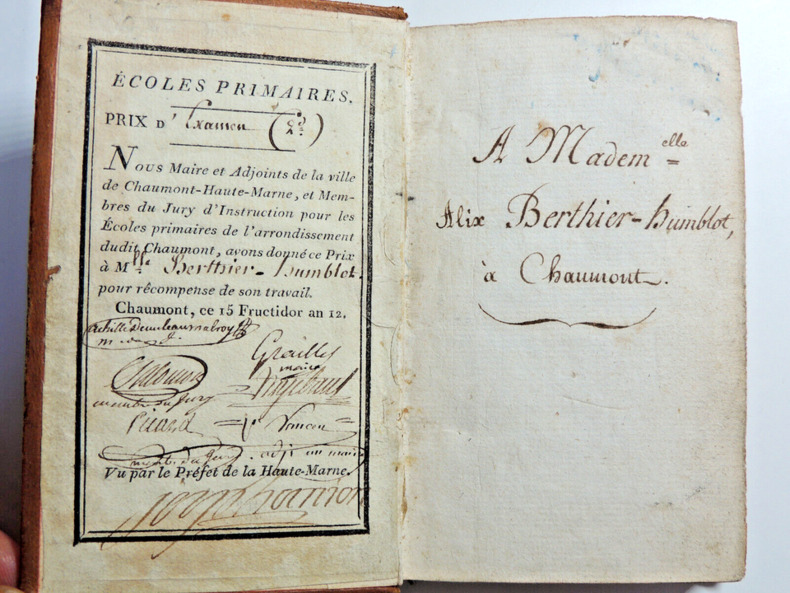 ÉCOLES PRIMAIRES.
PRIX D' Examen (2.e)
Nous Maire et Adjoints de la ville
de Chaumont-Haute-Marne, et Mem-
bres du Jury d'Instruction pour les
Écoles primaires de l'arrondissement
dudit Chaumont, avons donné ce Prix
à M.lle Berthier-humblot.
pour récompense de son travail.
Chaumont, ce 15 Fructidor an 12.
Graillet
maire
membre du Jury
Picard
memb. du Jury. adj. au maire
Vu par le Préfet de la Haute-Marne.
A Madem.elle
Alix Berthier-humblot,
à Chaumont.